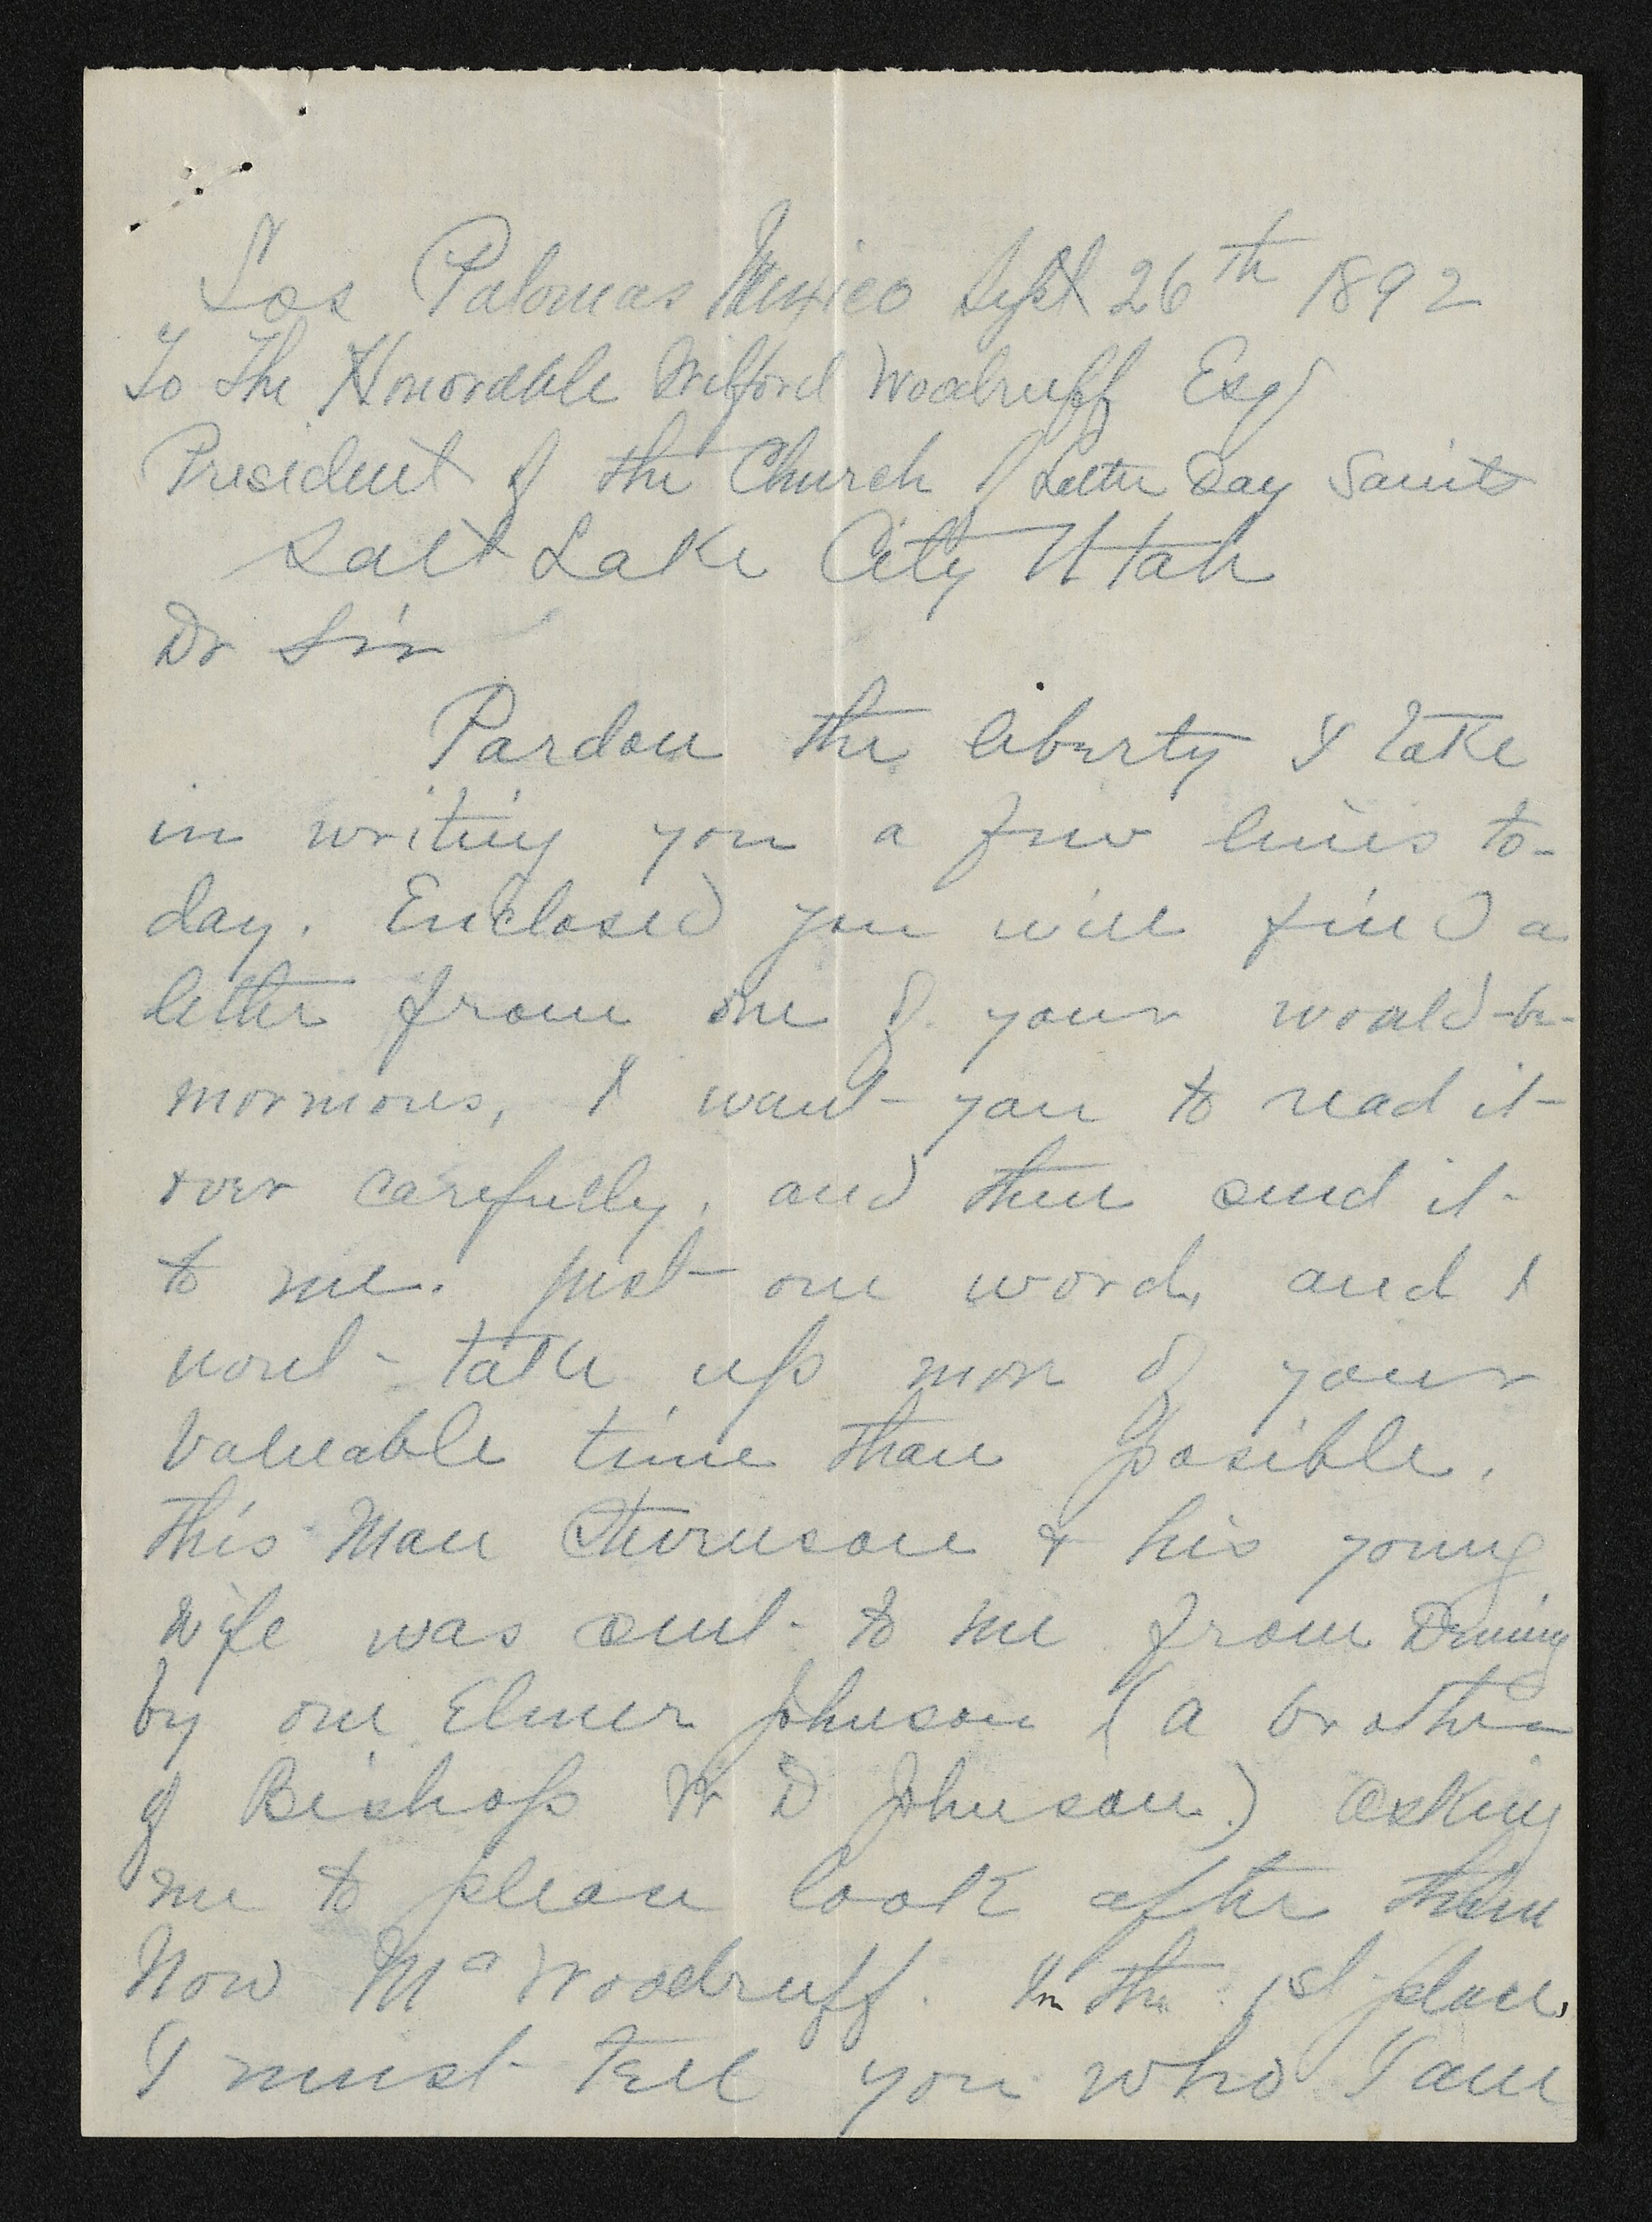 Los Palomas Mexico Sept 26th 1892
To The Honorable Wilford Woodruff Esq
President of the Church of Latter Day Saints
Salt Lake City Utah
Dr Sir
Pardon the liberty I take
in writing you a few lines to-
day. Enclosed you will find a
letter from one of your would-be-
mormons, I want you to read it
over carefully, and then send it
to me. just one word, and I
wont take up more of your
valuable time than posible.
this Man & his young
wife was sent to me from Deming
by one Elmer Johnson (a brother
of Bishop W D Johnson.) asking
me to please look after them
Now Mr Woodruff. In the 1st place,
I must tell you who I am